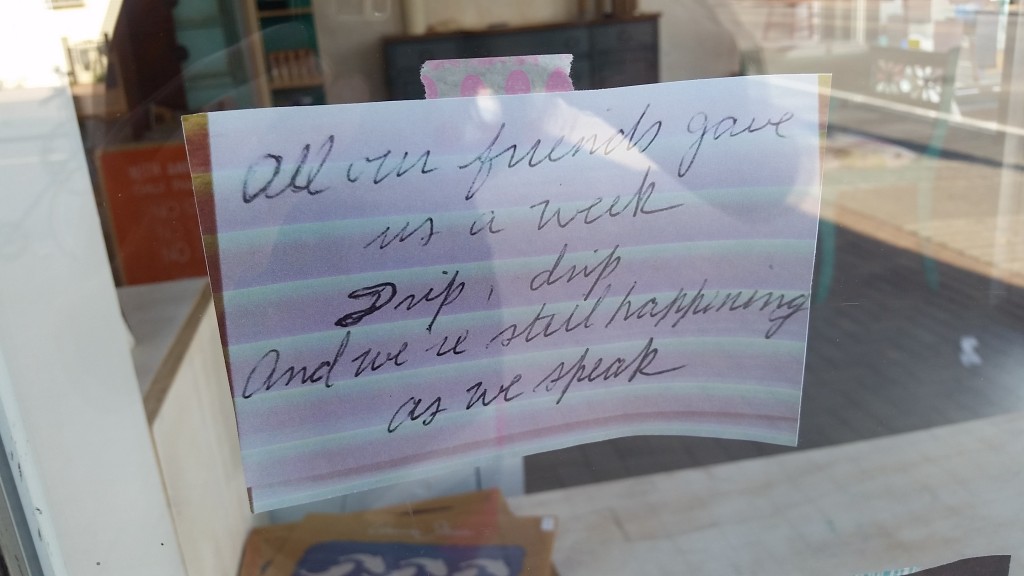 All our friends gave
us a week
Drip, drip
And we're still happening
as we speak